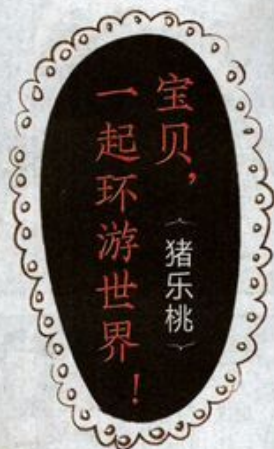 宝贝，
一起环游世界！
︿猪乐桃﹀